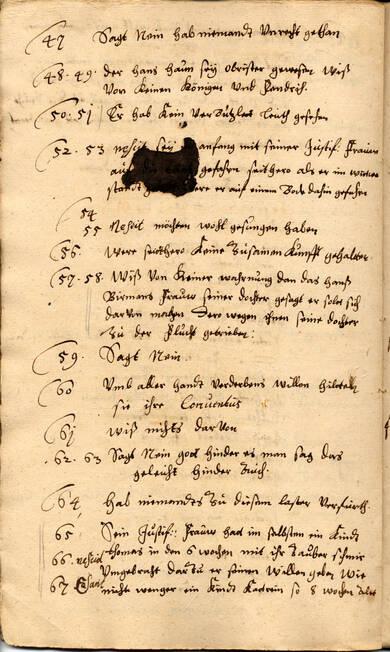 47 Sagt Nein hab niemandt Unrecht gethan
48. 49. der hans haum sey obrister gewesen wiß
von keinen Königen und fendrich.
50. 51 Er hab kein verbutzlet leuth gesehen
52. 53 nescit sey anfang mit seiner Justif: frauw
gefahren seithero als er im
er auf einem Bock dahin gefahren
54
55 Nescit möchten wohl gesungen haben
56. were seithero keine zusamen kunfft gehalten
57. 58 Wiß von keiner wahrnung dan das hanß
Birmans frauw seiner dochter gesagt er solt sich
darvon machen dero wegen ihnen seine dochter
zu der flucht getrieben:
59. Sagt Nein
60 Umb aller handt verderbens willen hielten
sie ihre Conventus
61 wiß nichts darvon
62. 63 Sagt Nein gott hinder es man sag das
geleicht hinder
64 hab niemandts zu diesem laster verführth
65 Sein Justif: frauw had im selbsten ein kindt
66. nescit thomas in den 6 wochen mit ihr zauber schmir
67 umgebracht darzu er seinen willen geben wie
nicht weniger ein kindt so 8 wochen alt